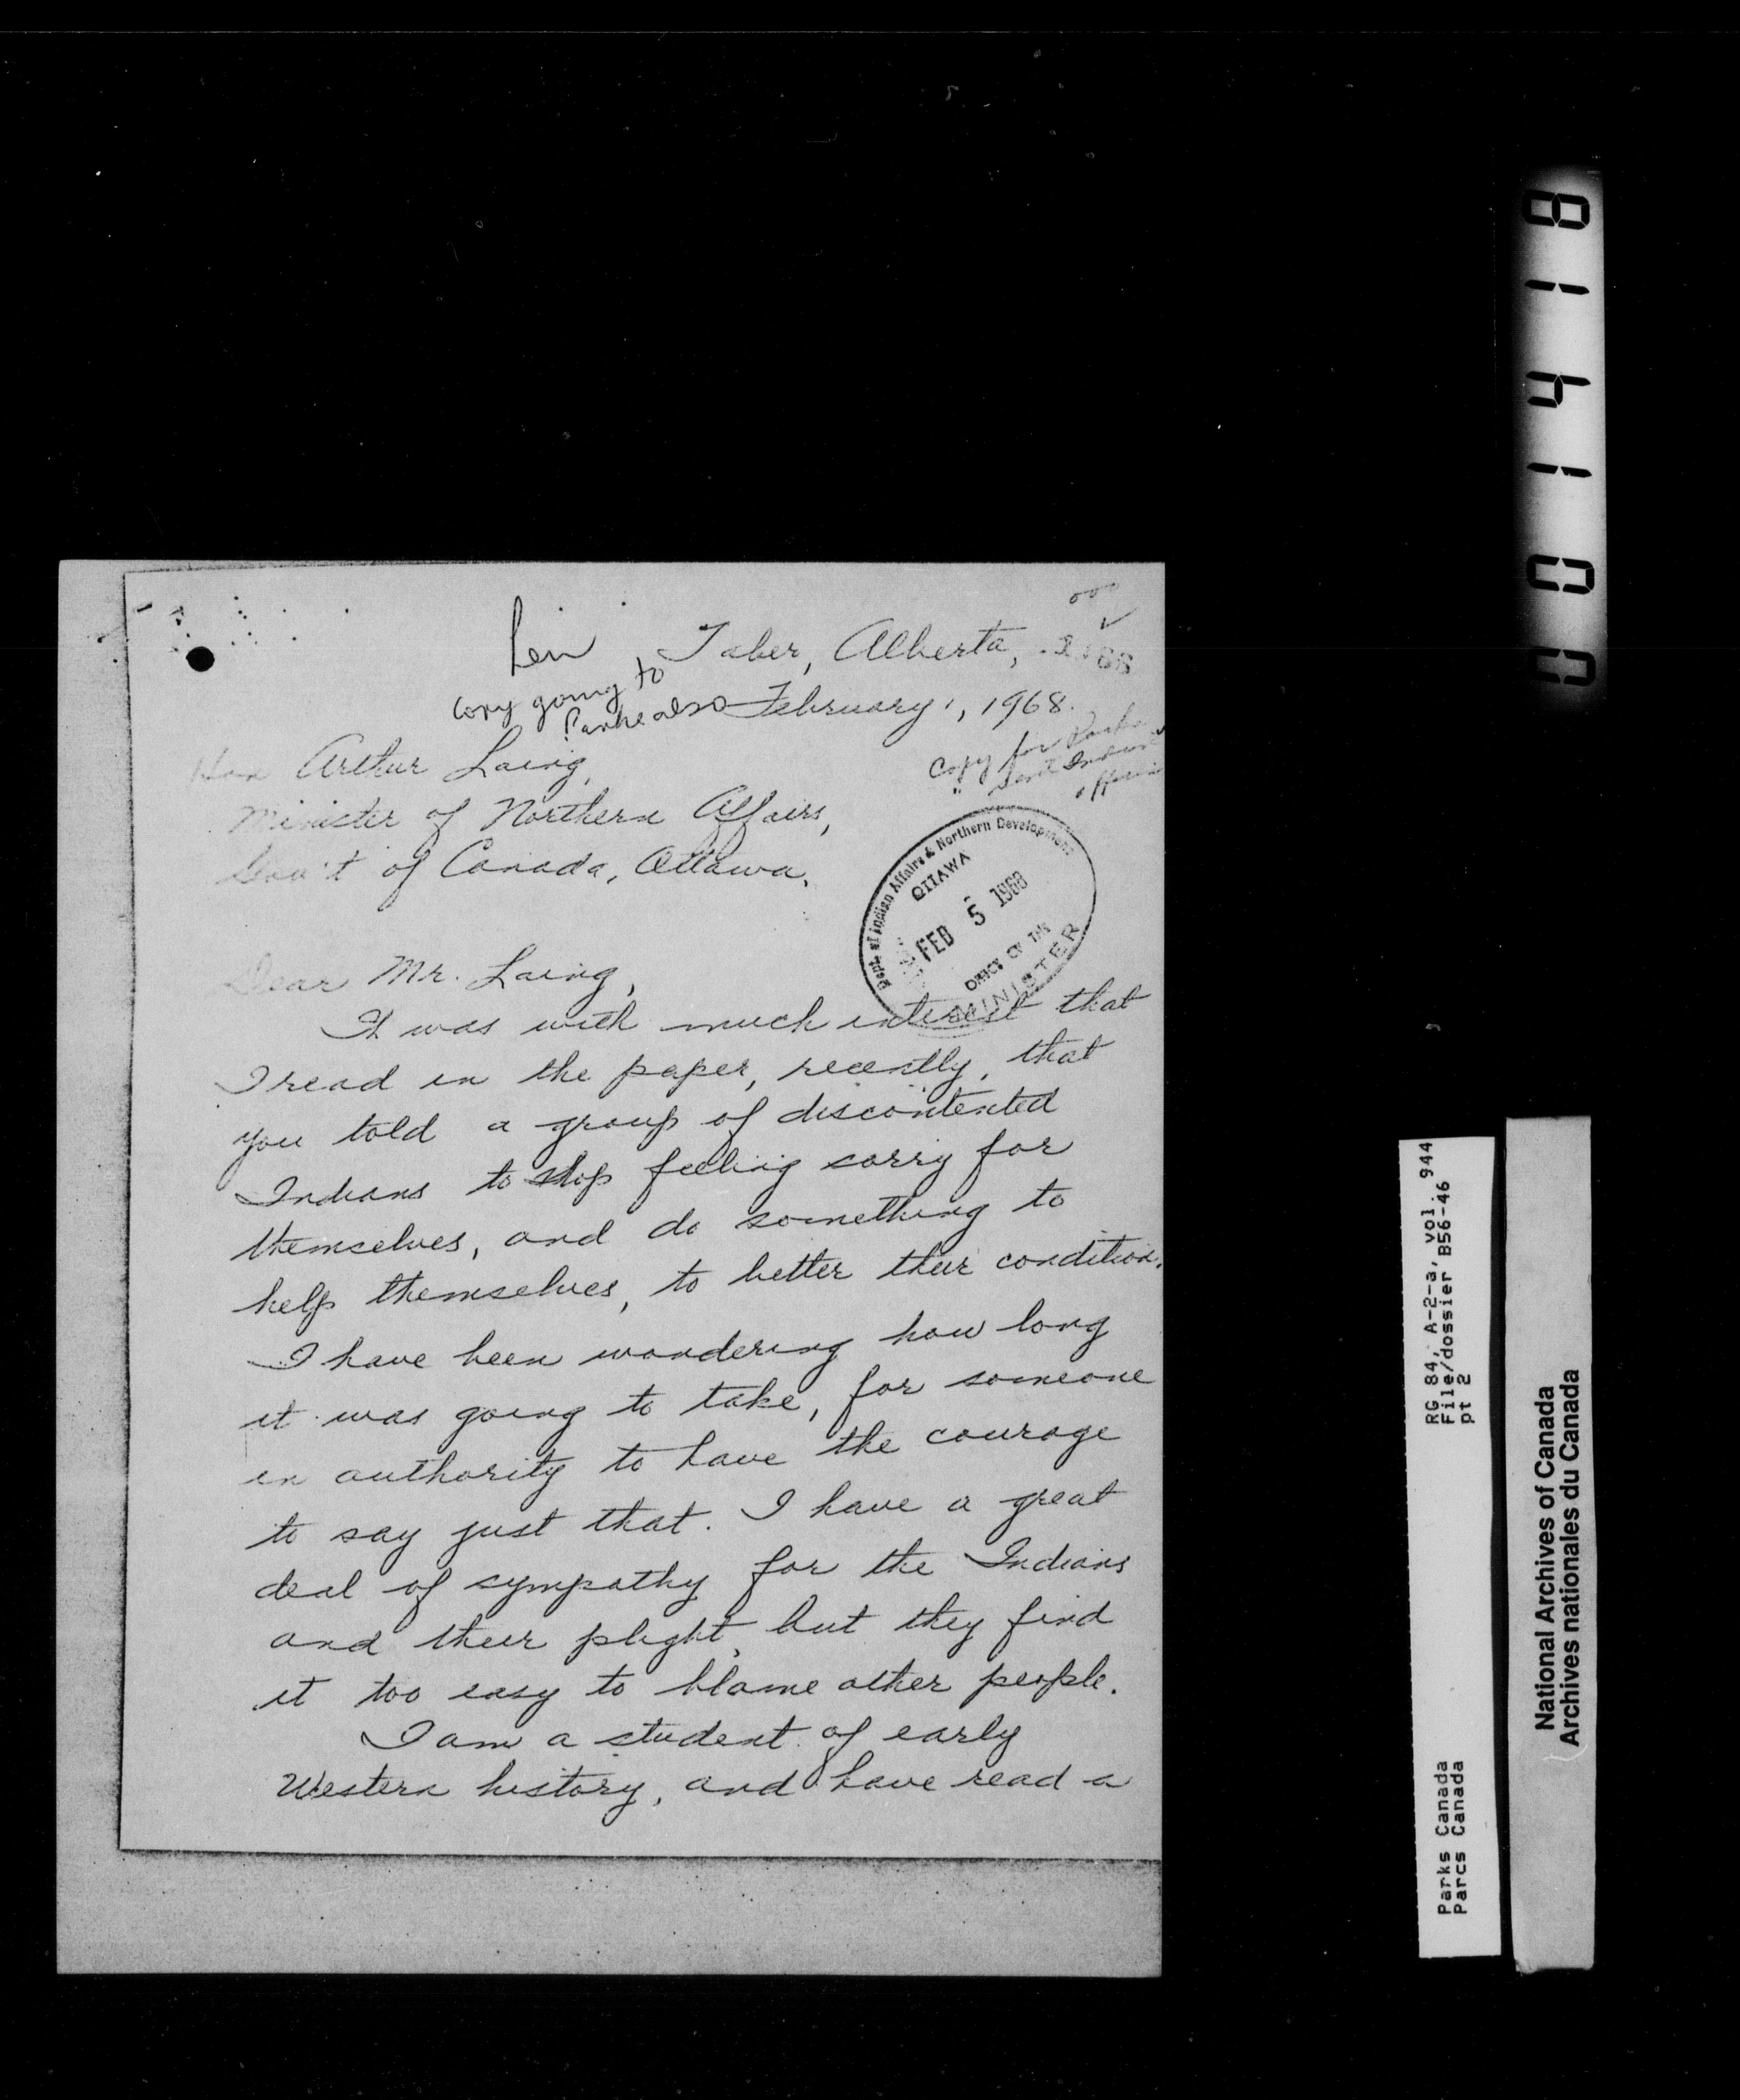 Taber, Alberta,
copy going to
Parks also
February 1, 1968.
Hon Arthur Laing,
Minister of Northern Affairs,
Gov't of Canada, Ottawa.
copy for Parks
Dept. of Indian Affairs & Northern Development
OTTAWA
FEB 5 1968
OFFICE OF THE
MINISTER
Dear Mr. Laing,
It was with much interest that
I read in the paper, recently, that
you told a group of discontented
Indians to stop feeling sorry for
themselves, and do something to
help themselves, to better their condition.
I have been wondering how long
it was going to take, for someone
in authority to have the courage
to say just that. I have a great
deal of sympathy for the Indians
and their plight, but they find
it too easy to blame other people.
I am a student of early
Western history, and have read a
001418
RG 84, A-2-a, vol. 944
File/dossier B56-46
pt 2
Parks Canada
Parcs Canada
National Archives of Canada
Archives nationales du Canada